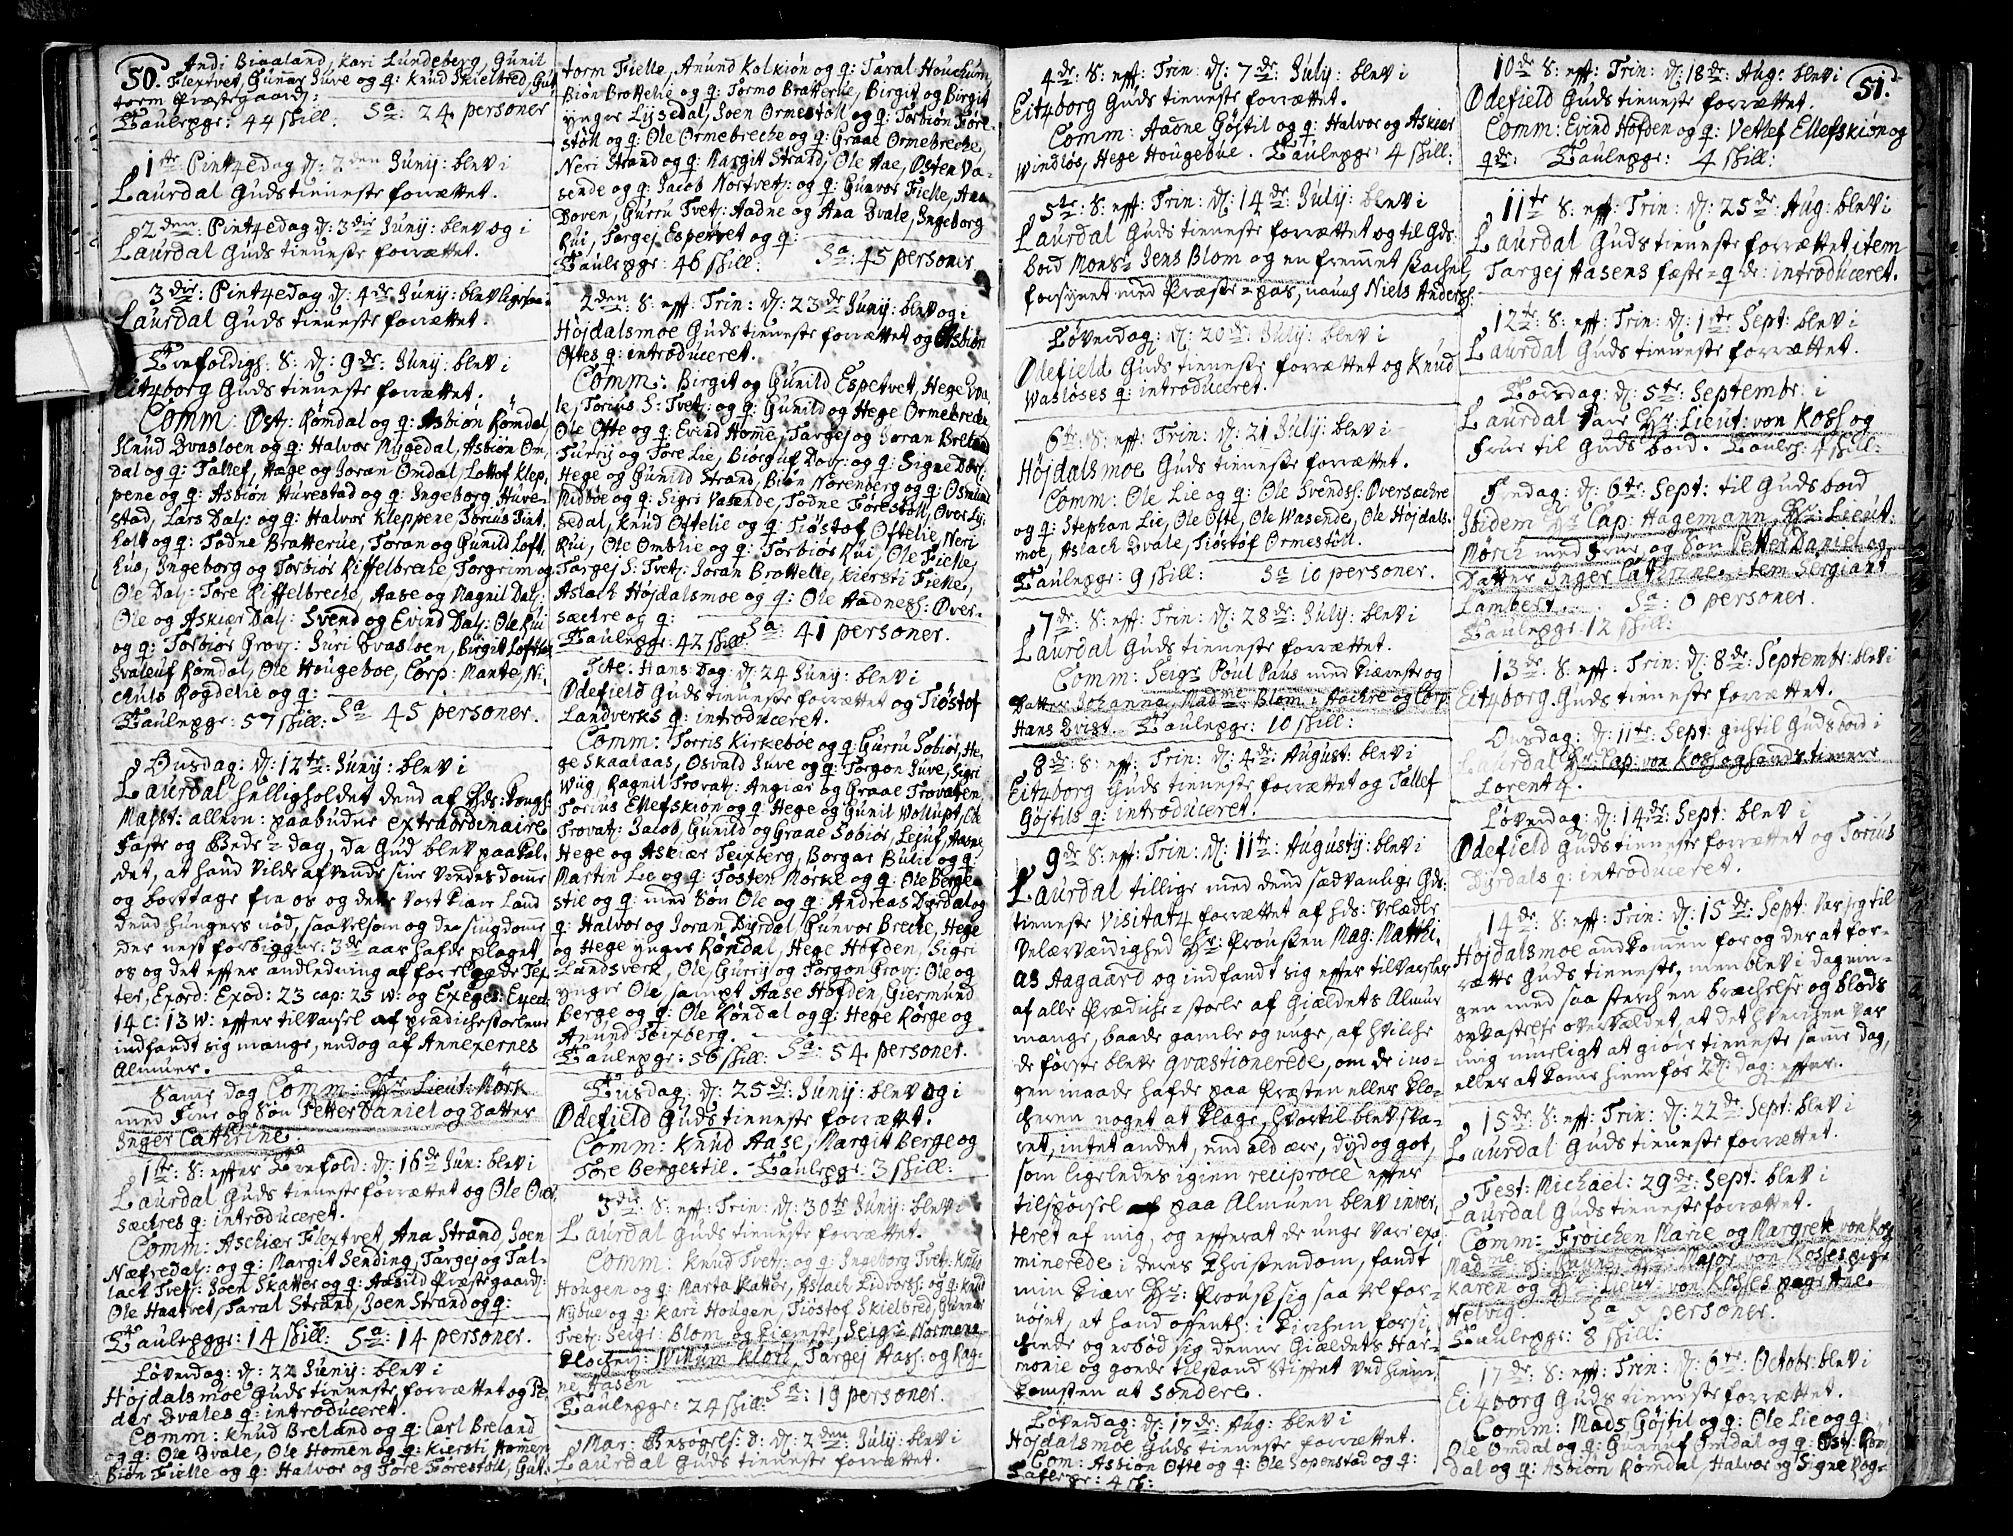 50. Andi Bisaland, Kari Lundeberg, Gunil
Flextvet, Gunnar Juve og q: Knud Skielbred, Gut
torm Præstegaard:
Taulepge: 44 skill: Sa: 24 personer
1te Pintzedag d: 2den Junij: blev i
Laurdal Guds tieneste forrættet.
2den: Pintzedag d: 3die Junij: blev og i
Laurdal Guds tieneste forrættet.
3die: Pintzedag d: 4de Junij: blev ligesaa
Laurdal Guds tieneste forrættet.
Trefoldigh: S: d: 9de Junij: blev i
Eitzborg Guds tieneste forrættet.
Comm: Østj: Rømdal og q: Asbiøn Rømdal,
Knud Dvasloen og q: Halvor Mygedal, Asbiøn Om-
dal og q: Tallef, Hage og Joran Omdal, Lottof Klep-
pene og q: Asbiøn Huvestad og q: Ingeborg Huve-
stad, Lars Dalj: og q: Halvor Kleppene, Torius Tint,
holt og q: Todne Bratterue, Toran og Gunild Loft,
hus, Ingeborg og Torbiør Riffelbreche Torgrim og
Ole Dalj: Tore Riffelbreche, Aase og Magnil Dalj:
Ole og Askiær Dalj: Svend og Eivind Dalj: Ole Rui
og q: Torbiør Grovj: Juri Dvasloen, Birgit Lofthus
Svaleuf Rømdal, Ole Hougeboe, Corp: Mante, Ni-
chuls Rogdelie og q:
Taulepge: 57 skill: Sa 45 personer.
Onsdag: d: 12te: Junij: blev i
Laurdal helligholdet dend af Hds: Kongl:
Mayst: allern: paabudne extraordinaire
Faste og Bede = dag, da Gud blev paakal-
det, at hand vilde afvende sine vredes domme
og borttage fra os og dette vort kiære Land
dend hungers nød, saavelsom og den siugdomme
der nest forbigger: 3de aar hafde plaget
os og det efter andledning af forelagde Tex-
ter, Exord: Exod: 23 cap: 25 w: og Exeges: Ezech:
14 C: 13 w: effter tilvarsel af prædichestoelene
indfandt sig mange, endog af Annexernes
Almue.
Same dag Comm: Hr Lieut: Mörk
med Frue og Søn Petter Daniel og Datter
Inger Cathrine.
1te: S: effter Trefold: d: 16de Jun: blev i
Laurdal Guds tieneste forrættet og Ole Over
sæchres q: introduceret.
Comm: Aschiær Flextvet, Ana Strand, Joen
Næfredalj: og q: Margit Sending, Targej og Tal-
lack Tvetj: Joen Skatter og q: Aasild Præstegaardj:
Ole Haatvet, Taral Strand, Joen Strand og q:
Taulepgge: 14 skill: Sa: 14 personer.
Løverdag: d: 22 Junij: blev i
Høydalsmoe Guds tieneste forrættet og Pe-
der Dvales q: introduceret.
Comm: Knud Breland og q: Carl Breland
og q: Ole Dvale, Ole Homen og q: Kiersti Homen
Biøn Fielle og q: Halvor og Tore Førestøll, Gut-
torm Fielle, Anund Kolkiøn og q: Taral Houchum,
Biøn Brottelie og q: Tormo Bratterlie, Birgit og Birgit
ynger Lijsedal, Joen Ormestøll og q: Torbiøn Føre-
støll og q: Ole Ormebreche og q: Graae Ormebreche,
Neri Strand og q: Margit Strand, Ole Aae, Østen Va-
sende og q: Jacob Nortvetj: og q: Gunvor Fielle, Ana
Doven, Gurru Tvetj: Aadne og Ana Dvale, Ingeborg
Rui, Torgej Espetvet og q:
Taulepge: 46 skill: Sa: 45 personer.
2den: S: eff: Trin: d: 23de Junij: blev og i
Højdalsmoe Guds tieneste forrættet og Asbiøn
Oftes q: introduceret.
Comm: Birgit og Gunild Espetvet, Hege Dva-
le, Torius S: Tvetj: og q: Gunild og Hege Ormebreche
Ole Ofte og q: Evind Homme, Targej og Joran Breland
Turrij og Tore Lie, Biorguf Dalj: og q: Signe Dalj:
Hege og Gunild Strand, Biøn Norenberg og q: Osmund
Midbøe og q: Sigri Vasende, Todne Førestøll, Over Lij-
sedal, Knud Oftelie og q: Tiøstof Oftelie, Neri
Rui, Ole Omblie og q: Torbiør Rui, Ole Fielle,
Targej S: Tvetj: Joran Brottelie, Kiersti Fielle,
Aslach Højdalsmoe og q: Ole Aadnesj: Over-
sæchre og q:
Taulepge: 42 skill: Sa: 41 personer.
Scte: Hans Dag: d: 24 Junij: blev i
Ødefield Guds tieneste forrættet og Tiøstof
Landverks q: introduceret.
Comm: Torris Kirkebøe og q: Gurru Sobiør, He-
ge Skaalaas, Osvald Juve og q: Torgon Juve, Sigri
Wiig, Ragnil Trovatj: Angiær og Graae Trovatten,
Torius Ellefskiøn og q: Hege og Gunil Vollupt, Ole
Trovatj: Jacob, Gunild og Graae Sobiør, Lejuf, Aasne
Hege og Askiær Teixberg, Borgar Bulie og q:
Martin Lie og q: Tosten Mørke og q: Ole Berge-
stie og q: med Søn Ole og q: Andreas Dyrdal og
q: Halvor og Joran Dyrdal, Gunvor Breche, Hege
og Hege ynger Røndal, Hege Hofden, Sigri
Landsverk, Ole, Gurrij og Torgon Grovj: Ole og
ynger Ole, sampt Aase Hofden, Giermund
Berge og q: Ole Røndal og q: Hege Rørge og
Anund Teixberg.
Taulepge: 56 skill: Sa: 54 personer.
Tiisdag: d: 25de: Junij: blev og i
Ødefield Guds tieneste forrættet.
Comm: Knud Aase, Margit Berge og
Tore Bergestil. Taulepge: 3 skill:
3die: S: eff: Trin: d: 30te Junij: blev i
Laurdal Guds tieneste forrættet.
Comm: Knud Tvetj: og q: Ingeborg Tvetj: Knud
Hougen og q: Marta Katter, Aslach Lidvorsj: og q: Knud
Nybue og q: Kari Hougen, Tiøstof Skielbred, Gunnar
Tvetj: Seigr: Blom og Kiæreste, Seigr Normene,
Klocherj: Willum Klobe, Targej Aasj: og Rag-
ne Aasen
Taulepge: 24 skill: Sa: 19 personer.
Mar: Besøgels: D: d: 2den: July: blev i
Laurdal Guds tieneste forrættet.
4de: S: eff: Trin: d: 7de: July: blev i
Eitzborg Guds tieneste forrættet.
Comm: Aadne Gøjtil og q: Halvor og Askiær
Windlos, Hege Hougebue. Taulepge: 4 skill:
5te: S: eff: Trin: d: 14de: July: blev i
Laurdal Guds tieneste forrættet og til Gds:
bord Monsr Jens Blom og en fremmet Stachel,
forsynet med Præste = pas, naunl Niels Andersj:
Løverdag: d: 20de: July: blev i
Ødefield Guds tieneste forrættet og Knud
Wasloses q: introduceret.
6te: S: eff: Trin: d: 21 July: blev i
Højdalsmoe Guds tieneste forrættet.
Comm: Ole Lie og q: Ole Svendsj: Oversæchre
og q: Stephan Lie, Ole Ofte, Ole Wasende, Ole Højdals-
moe, Aslach Dvale, Tiøstof Ormestøll.
Taulepge: 9 skill: Sa 10 personer.
7de: S: eff: Trin: d: 28de: July: blev i
Laurdal Guds tieneste forrættet.
Comm: Seigr Poul Paus med Kiæreste og
Datter Johanna, Madme: Blom i Sæchre og Corp:
Hans Qvist. Taulepge: 10 skill:
8de: S: eff: Trin: d: 4de: August: blev i
Eitzborg Guds tieneste forrættet og Tallef
Gøjtils q: introduceret.
9de S: eff: Trin: d: 11te: Augustij: blev i
Laurdal tillige med dend sædvanlige Gds:
tieneste Visitatz forrættet af Hds: Vlædle
Velærværdighed Hr: Prousten Mag: Matthi-
as Aagaard og indfandt sig effter tilvarsler
af alle Prædiche = stoele af Gieldets Almue
mange, baade gamle og unge, af hvilche
de første bleve qvæstionerede, om de i no-
gen maade hafde paa Præsten eller Klo-
cheren noget at klage, hvortil blev sva-
ret, intet andet, end ald ære, dyd og got,
som ligeledes igien reciproce effter
tilspørsel paa Almuen blev inver-
teret af mig, og effterat de unge vare exa-
minerede i deres Christendom, fandt
min kiære Hr: Proust sig saa vel for-
nøiet, at hand offentl: i Kirchen forsi-
chrede og erbød sig denne Gieldets Har-
monie og goede tilstand Stiftet ved hiem-
komsten at sondere.
Løverdag: d: 17de: Aug: blev i
Højdalsmoe Guds tieneste forrættet.
Com: Asbiøn Ofte og q: Ole Sopenstad og q:
Taulepge: 4 sk:
10de S: eff: Trin: d: 18de: Aug: blev i 51.
Ødefield Guds tieneste forrættet.
Comm: Evind Hofden og q: Vetlef Ellefskiøn og
qde: Taulepge: 4 skill:
11te S: eff: Trin: d: 25de: Aug: blev i
Laurdal Guds tieneste forrættet, item
Targej Aasens fæste = qde: introduceret.
12te: S: eff: Trin: d: 1ste Sept: blev i
Laurdal Guds tieneste forrættet.
Torsdag: d: 5te: Septembr: i
Laurdal vare Hr: Lieut: von Koss og
Frue til Guds bord. Taulep: 4 skill:
Fredag: d: 6te: Sept: til Guds bord
Ibidem Hr Cap: Hagemann, Hr: Lieut:
Mørch med Frue og Søn Petter Daniel og
Datter Inger Cathrine, item Sergiant
Lambert. Sa: 0 personer.
Taulepge: 12 skill:
13de: S: eff: Trin: d: 8de: Septembr: blev i
Eitzborg Guds tieneste forrættet.
Onsdag: d: 11te: Sept: til Guds bord i
Laurdal Hr: Cap: von Koss og hands tienere
Lorentz.
Løverdag: d: 14de: Sept: blev i
Ødefield Guds tieneste forrættet og Torius
Dyrdals q: introduceret.
14de: S: eff: Trin: d: 15de: Sept: var jeg til
Højdalsmoe andkomen for og der at for-
rætte Guds tieneste, men blev i dagnin-
gen med saa sterch en bræchelse og blods
opkastelse overvældet, at det hverchen var
mig mueligt at giøre tieneste samme dag,
eller at kome hiem før 2d: dag: effter.
15de: S: eff: Trin: d: 22de: Sept: blev i
Laurdal Guds tieneste forrættet.
Fest: Michael: 29de: Sept: blev i
Laurdal Guds tieneste forrættet.
Comm: Froichen Marie og Margrete von Koss
Madme Major von Kosses pige
Karen og Hr Lieut: von Kosses page Ane
Helvig. Sa 5 personer.
Taulepge: 8 skill:
17de: S: eff: Trin: d: 6te: Octobr: blev i
Eitzborg Guds tieneste forrættet.
Comm: Mads Gøjtil og q: Ole Lie og q:
Ole Omdal og q: Gunnuf Omdal og q: Østj: Røm-
dal og q: Asbiøn Rømdal, Halvor og Signe Rog-